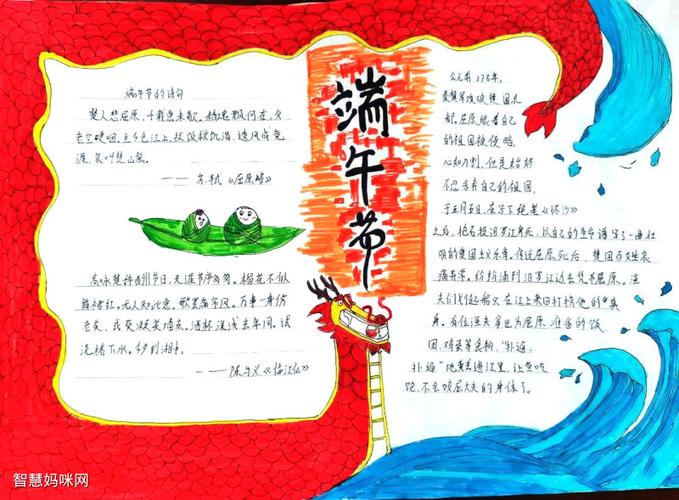 端午节
端午节的诗句
楚人悲屈原，千载意未歇。精魂飘何在，父
老空哽咽。至今仓江上，投饭救饥渴。遗风成竞
渡，哀叫楚山裂。
——苏轼《屈原塔》
高咏楚词酬午日，天涯节序匆匆。榴花不似
舞裙红。无人知此意，歌罢满帘风。万事一身伤
老矣，戎葵凝笑墙东。酒杯深浅去年同。试
浇桥下水，今夕到湘中。
——陈与义《临江仙》
公元前278年，
秦楚军攻破楚国京
都。屈原眼看自己
的祖国被侵略，
心如刀割，但是始终
不忍舍弃自己的祖国，
于五月五日，在写下绝笔《怀沙》
之后，抱石投汨罗江身死，以自己的生命谱写了一曲壮
丽的爱国主义乐章。传说屈原死后，楚国百姓哀
痛异常，纷纷涌到汨罗江边去凭吊屈原。渔
夫们划起船只在江上来回打捞他的真
身。有位渔夫拿出为屈原准备的饭
团、鸡蛋等食物，“扑通、
扑通”地丢进江里，让鱼吃
饱，不会咬屈大夫的身体了。
智慧妈咪网